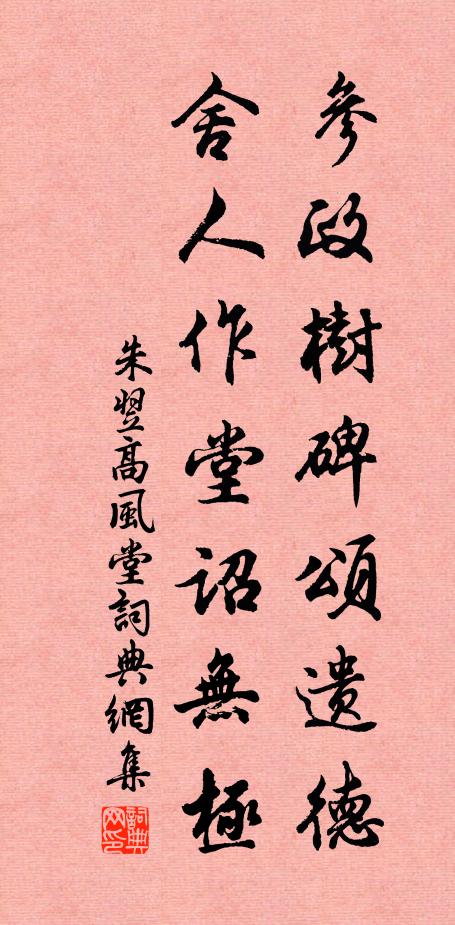 參政樹碑頌遺德
舍人作堂詔無極
朱翌高風堂詞典網集
詞典網印